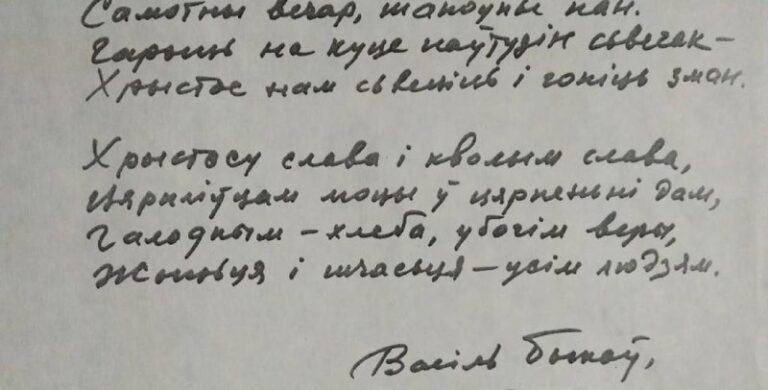 Самотны вечар, шаноўны пан.
Гараць на куце паўтузін сьвечак—
Хрыстос нам сьвеціць і гоніць зман.
Хрыстосу слава і кволым слава,
Цярпліўцам моцы ў цярпеньні дам,
Галодным – хлеба, убогім веры,
Жыцьця і шчасьця – усім людзям.
Васіль Быкаў,